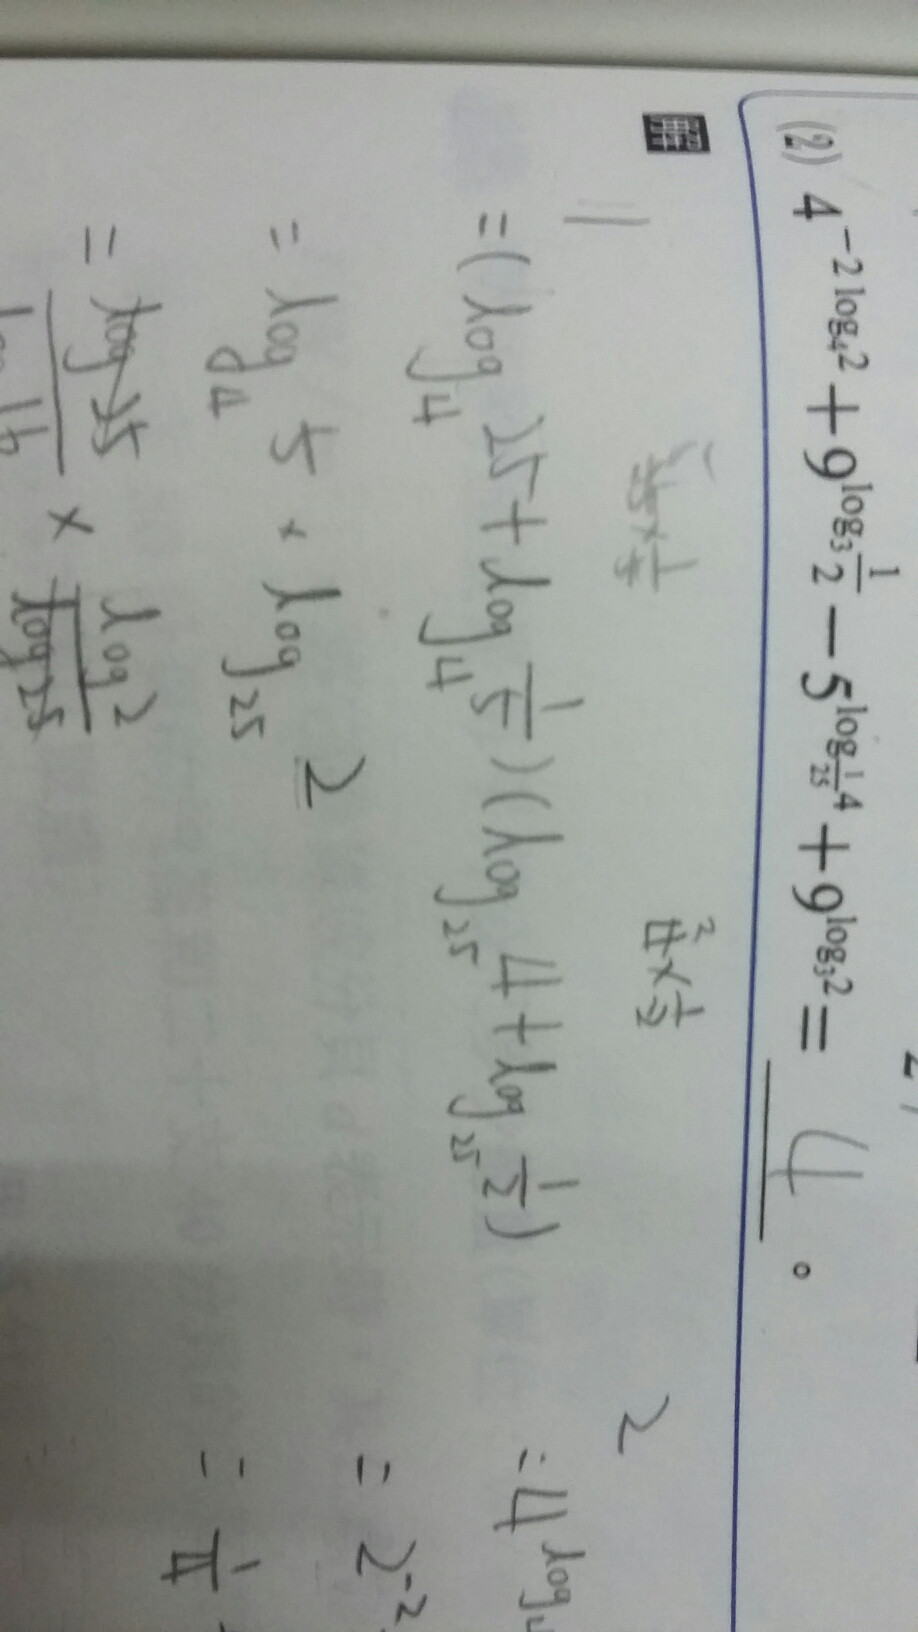 (2) 4^{-2\log_4 2} + 9^{\log_3 \frac{1}{2}} - 5^{\log_{\frac{1}{25}} 4} + 9^{\log_3 2} = 4 。
解
1
4 × 1/2
2
= (log_4 25 + log_4 1/5)(log_25 4 + log_25 1/2)
= 4^{log_4
= log_4 5 · log_25 2
= 2^{-2}
= log 25 / log 16 × log 2 / log 25
= 1/4